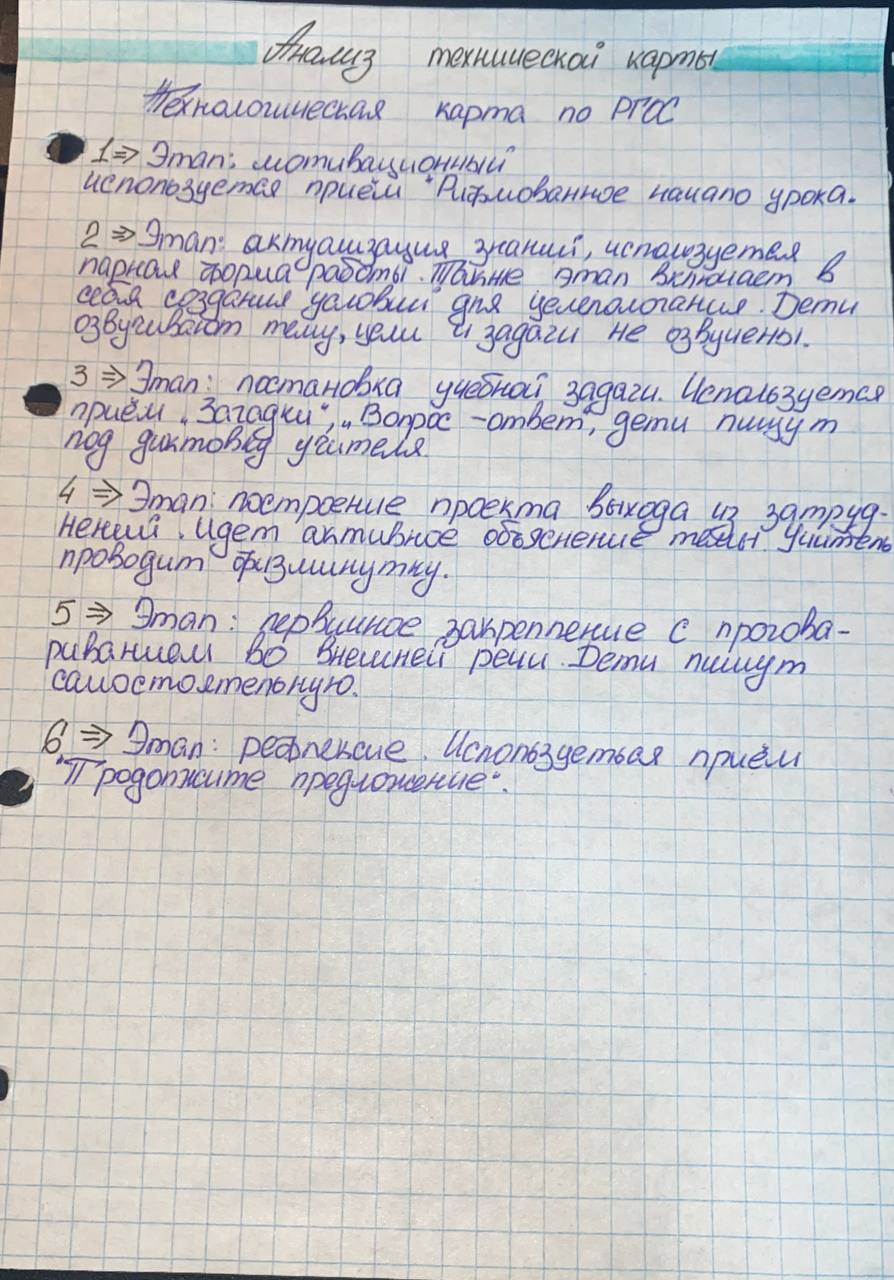 Анализ технической карты
Технологическая карта по ФГОС
1⇒ Этап: мотивационный
используется приём "Рифмованное начало урока.
2 ⇒ Этап: актуализация знаний, используется
парная форма работы. Также этап включает в
себя создания условий для целепологания. Дети
озвучивают тему, цели и задачи не озвучены.
3 ⇒ Этап: постановка учебной задачи. Используется
приём „Загадки", „Вопрос -ответ, дети пишут
под диктовку учителя.
4 ⇒ Этап: построение проекта выхода из затруд-
нений. Идет активное объяснение темы. Учитель
проводит физминутку.
5 ⇒ Этап: первичное закрепление с прогова-
риванием во внешней речи. Дети пишут
самостоятельную.
6 ⇒ Этап: рефлексие. Используеться приём
"Продолжите предложение".